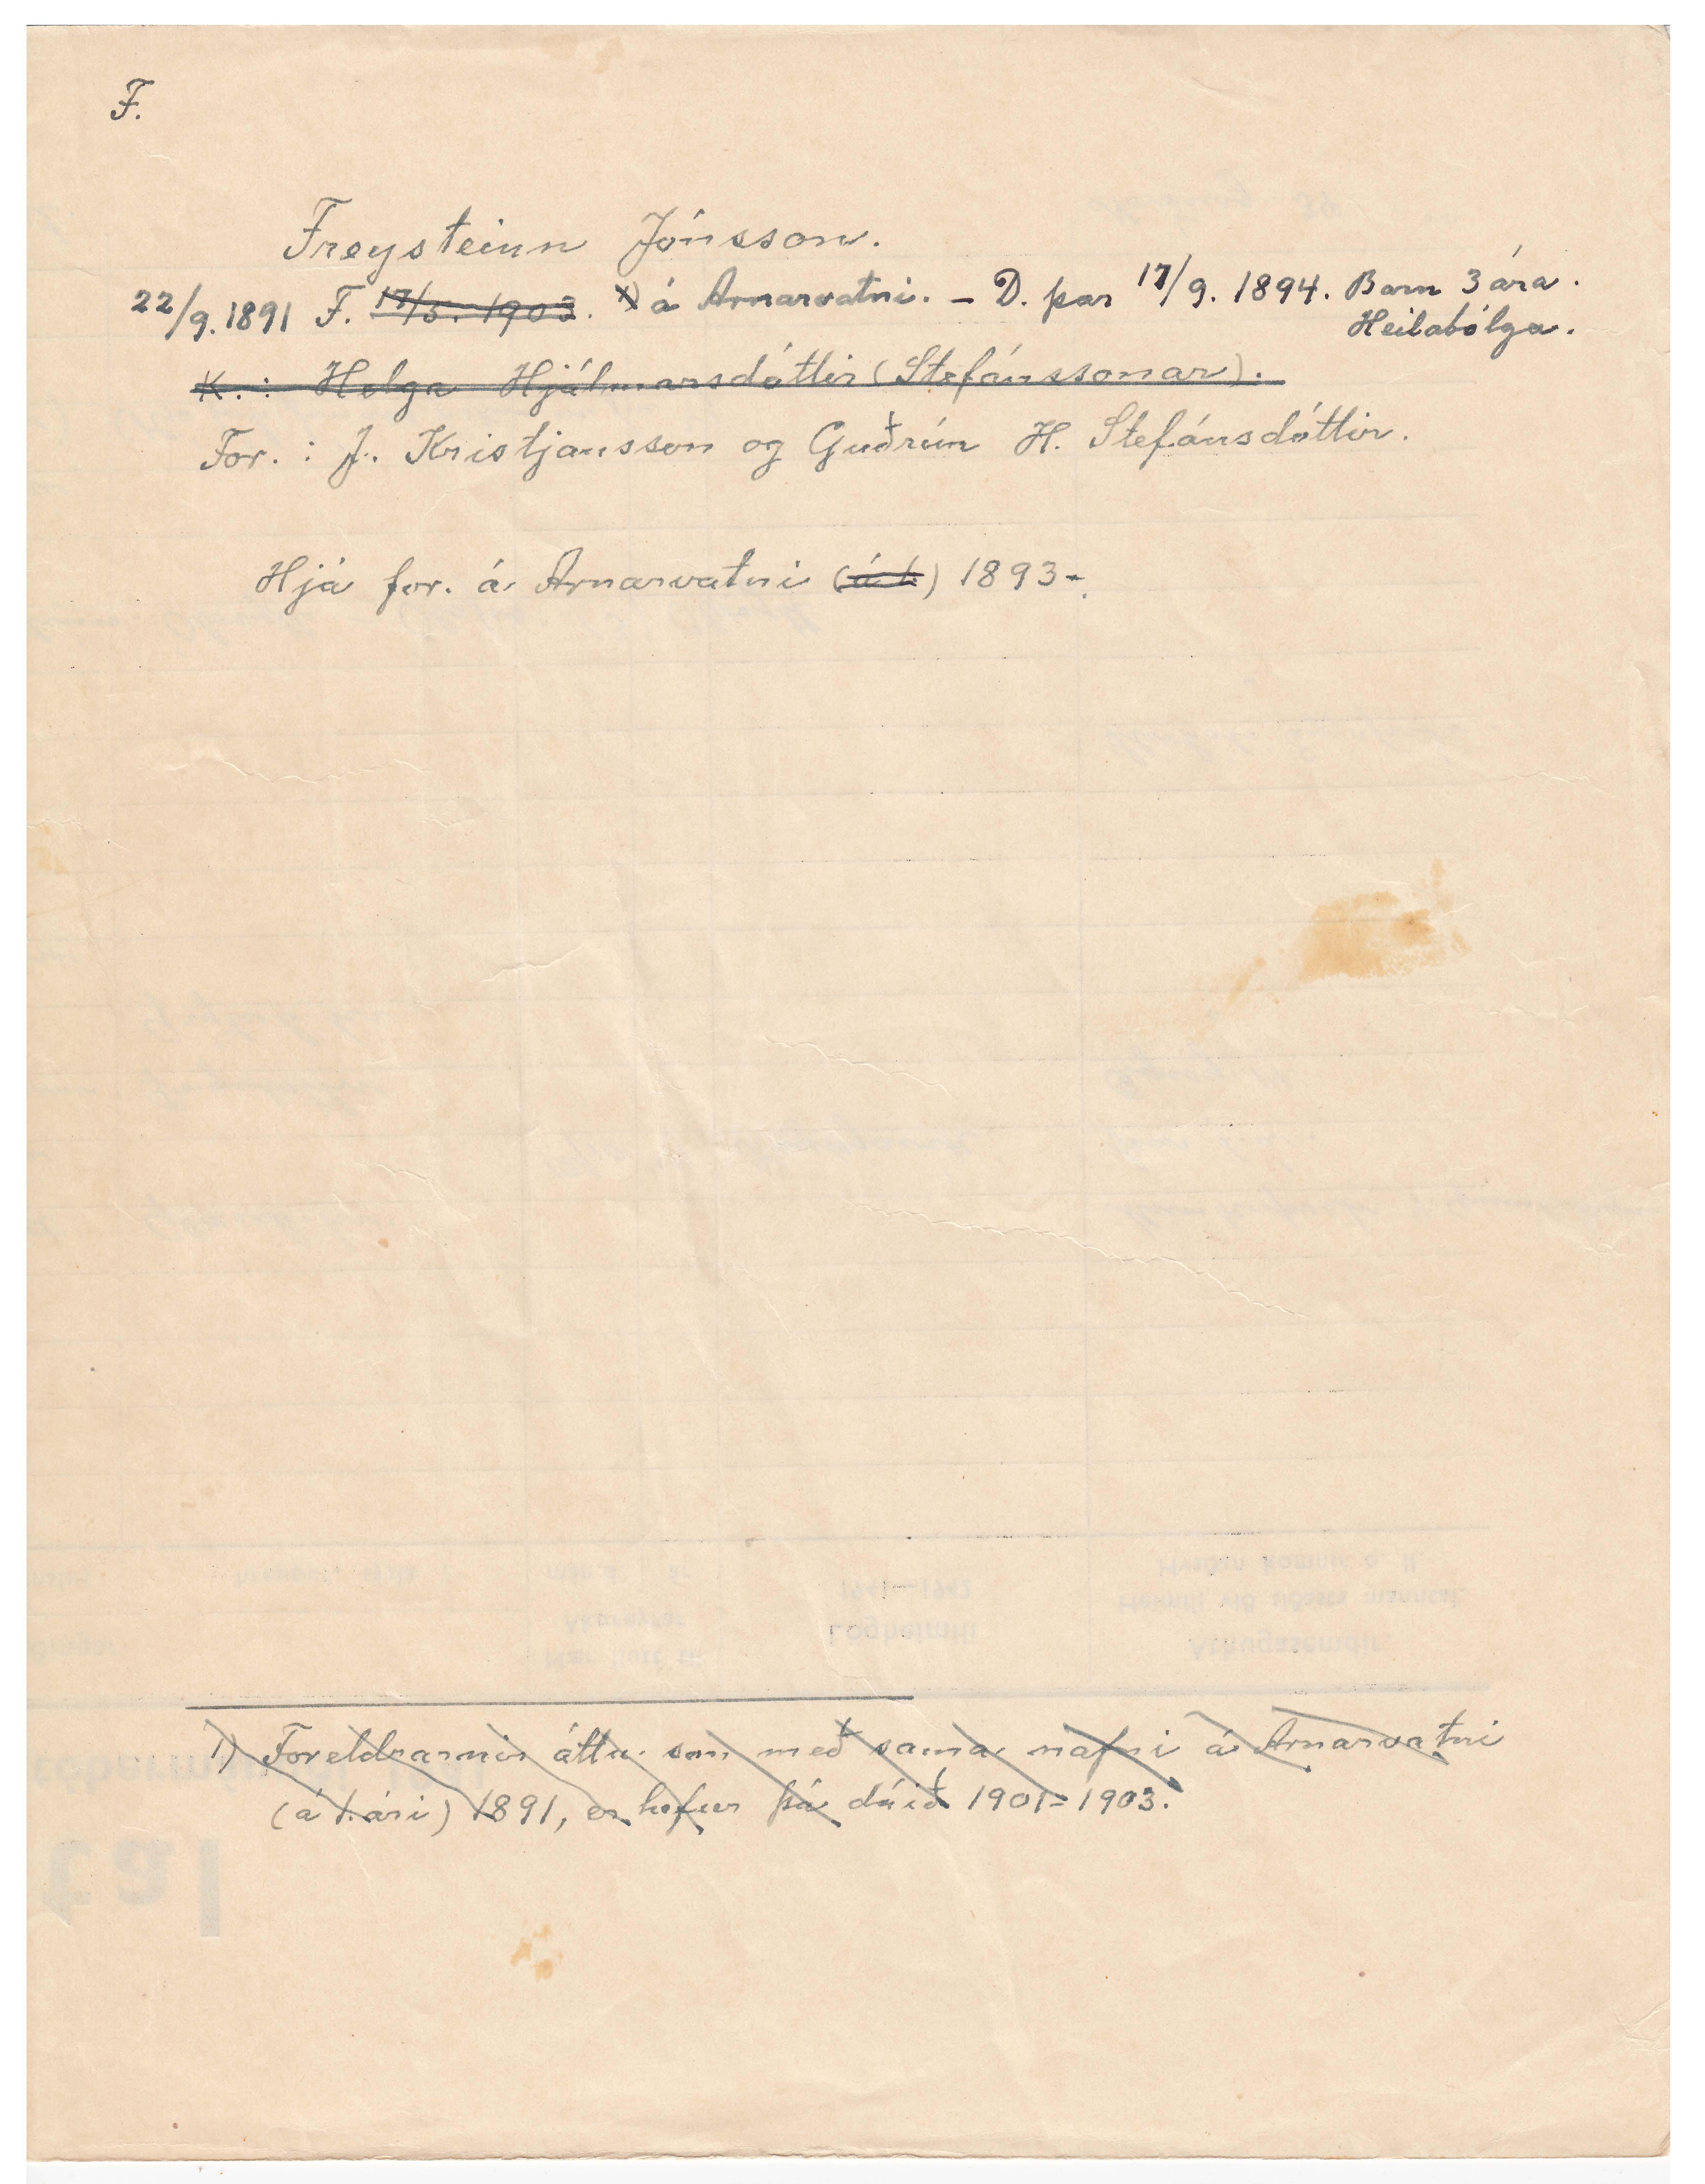 F.
Freysteinn Jónsson.
22/9. 1891 F. 17/5. 1903. 1) á Arnarvatni. – D. þar 17/9. 1894. Barn 3 ára.
Heilabólga.
K. : Helga Hjálmarsdóttir (Stefánssonar).
For. : J. Kristjansson og Guðrún H. Stefánsdóttir.
Hjá for. á Arnarvatni (á 1.) 1893-.
1) Foreldrarnir áttu son með sama nafni á Arnarvatni
(á 1. ári) 1891, er hefur þá dáið 1901-1903.